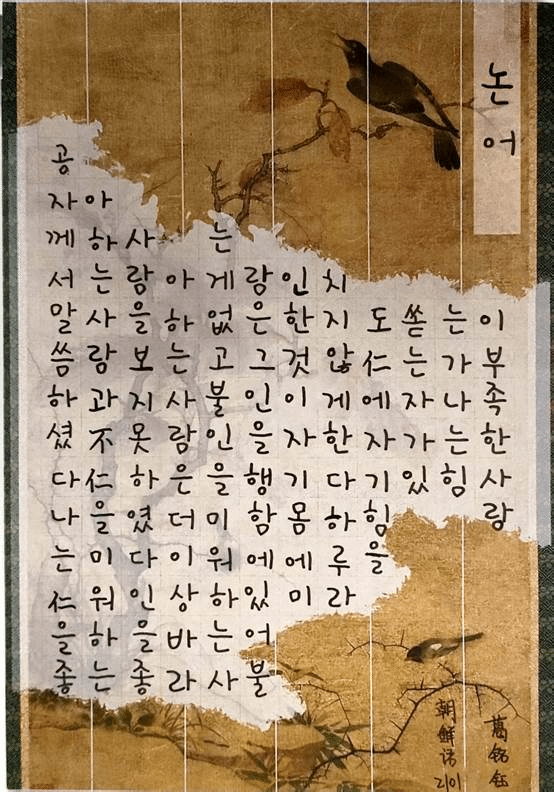 논어
공자께서말씀하셨다나는仁을좋
아하는사람과不仁을미워하는
사랑을보지못하였다인을좋
아하는사람은더이상바라
는게없고불인을미워하는사
랑은그인을행함에있어불
인한것이자기몸에미
치지않게한다하루라
도仁에자기힘을
쏟는자가있
는가나는힘
이부족한사랑
葛铭钰
朝鲜语2101